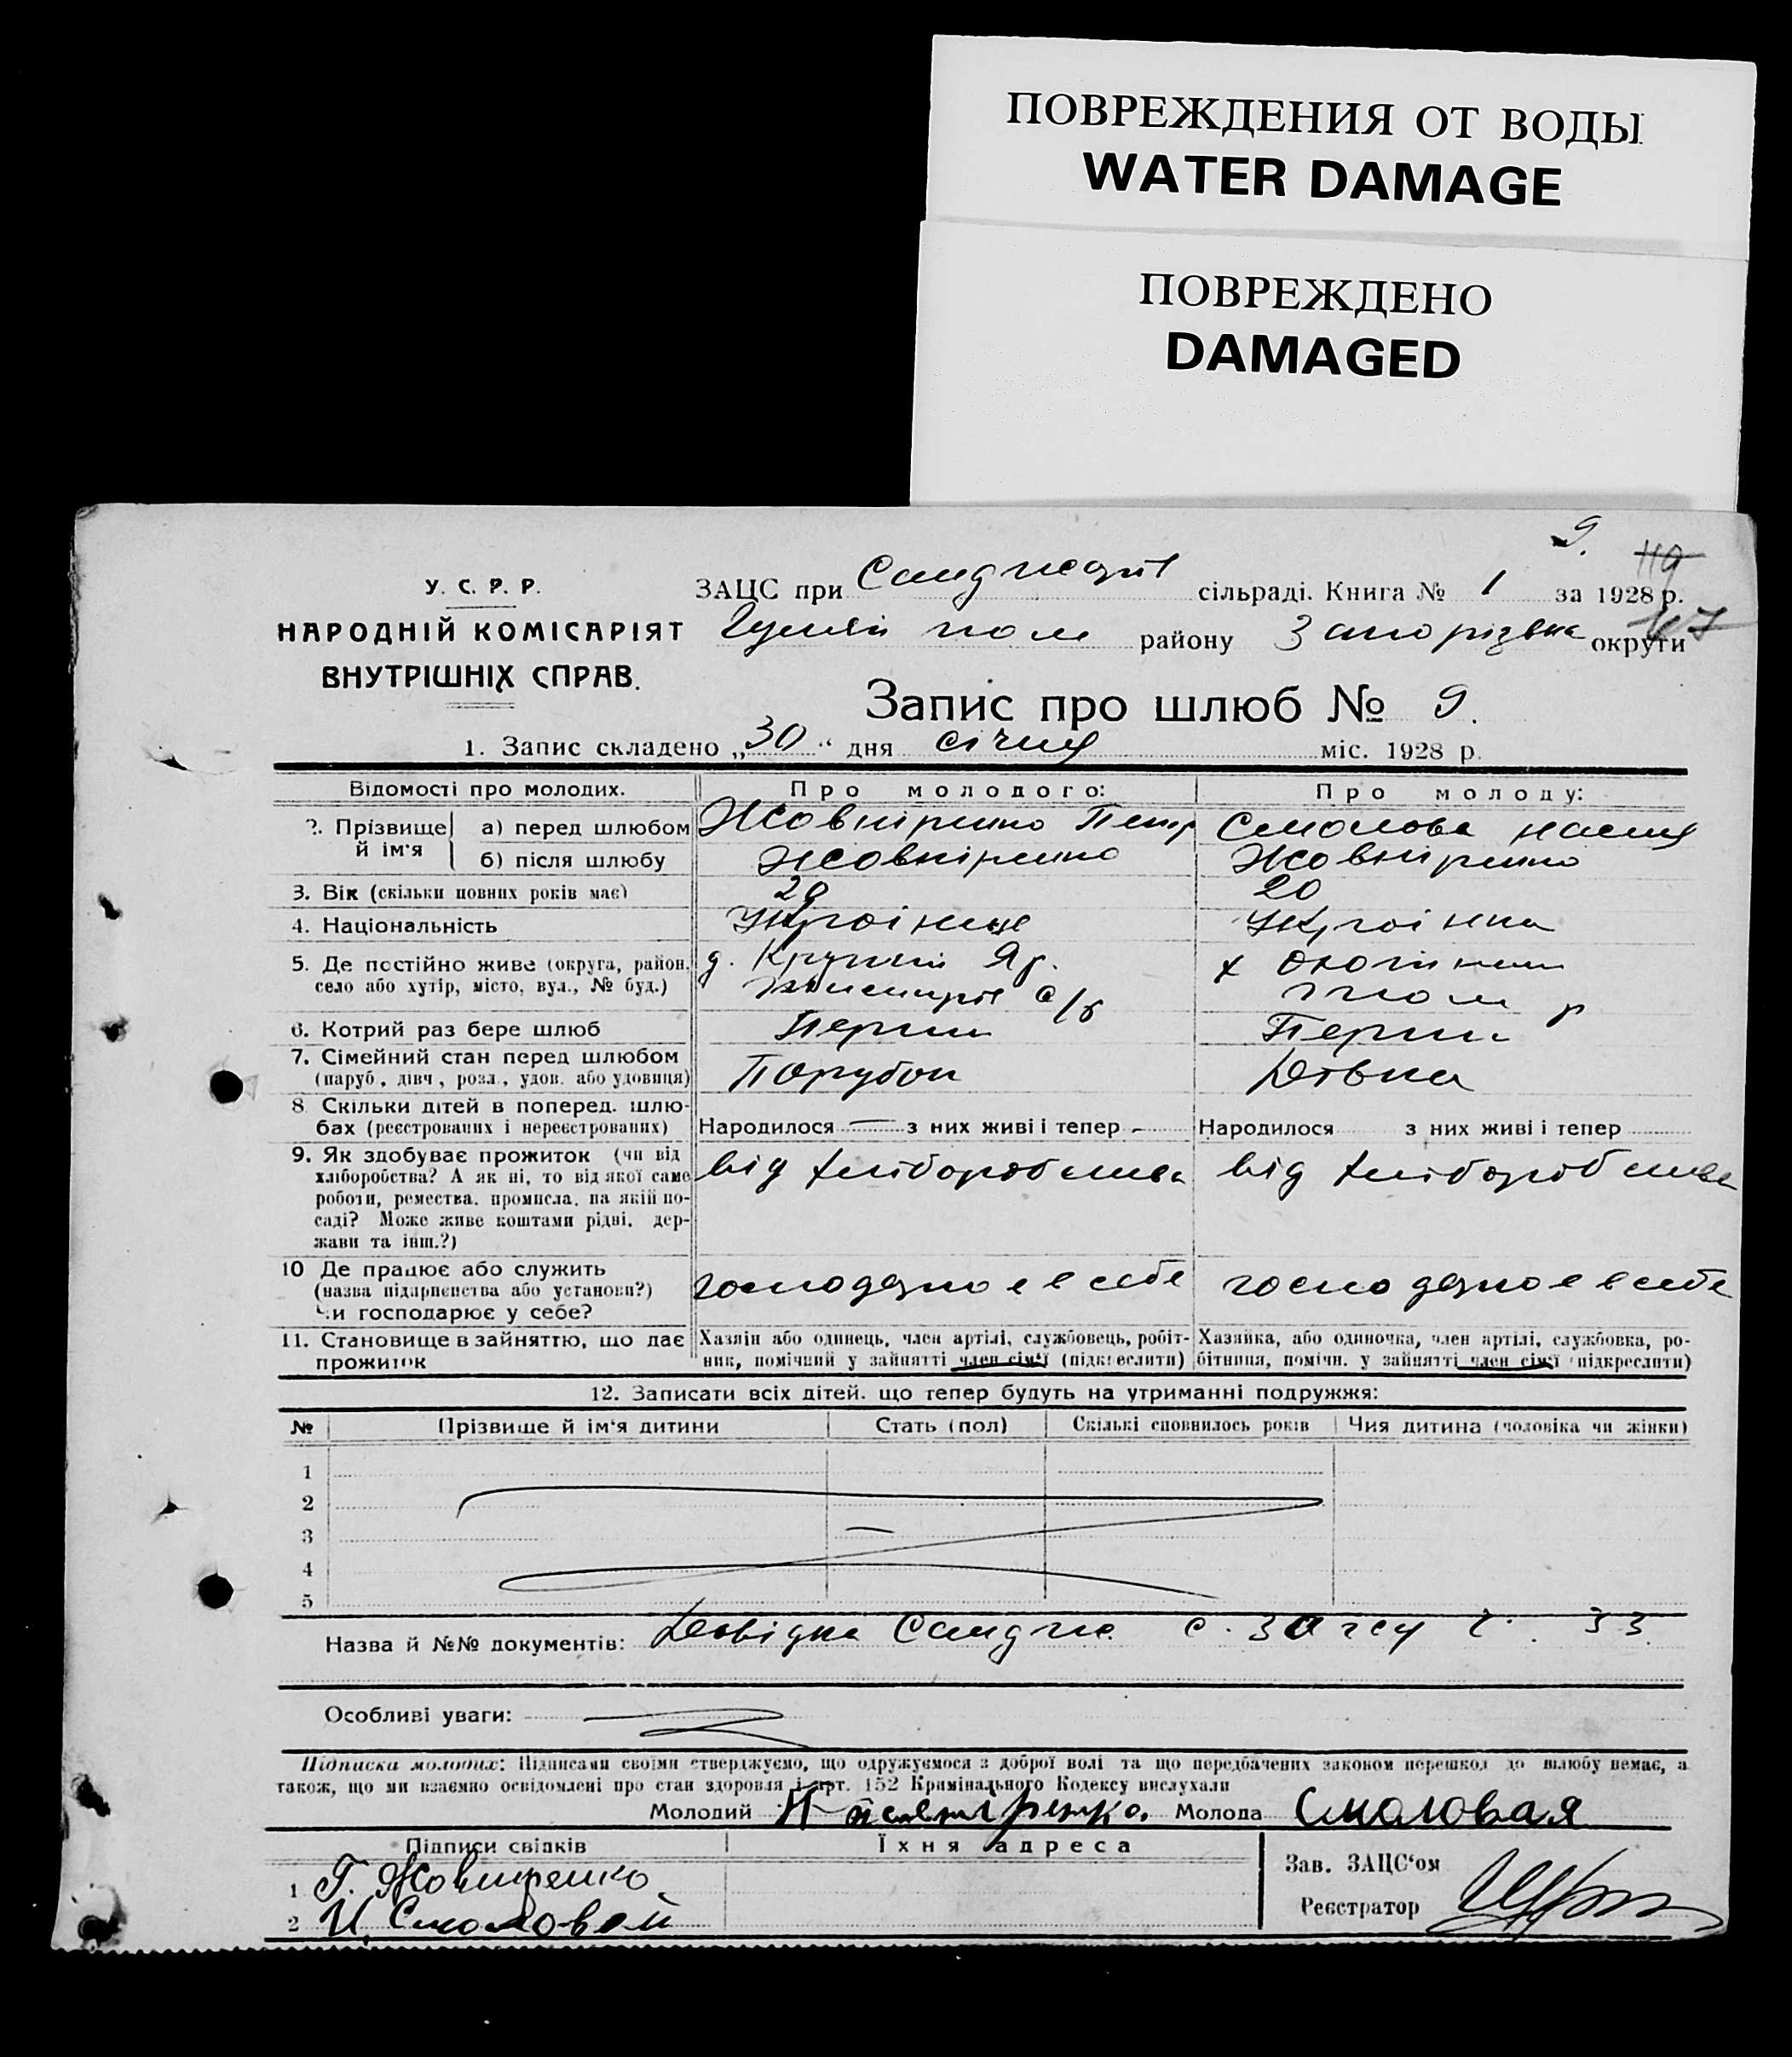 ПОВРЕЖДЕНИЯ ОТ ВОДЫ
WATER DAMAGE
ПОВРЕЖДЕНО
DAMAGED
9.
119
У. С. Р. Р.
НАРОДНІЙ КОМІСАРІЯТ
ВНУТРІШНІХ СПРАВ.
ЗАЦС при сільраді. Книга № 1 за 1928 р.
Гуляй поле району Запорізька округи
Запис про шлюб № 9.
1. Запис складено „30“ дня січня міс. 1928 р.
Відомості про молодих. Про молодого: Про молоду:
2. Прізвище й ім'я а) перед шлюбом Жовніренко Петр Смолова Настя
б) після шлюбу Жовніренко Жовніренко
3. Вік (скільки повних років має) 20
4. Національність Українец Українка
5. Де постійно живе (округа, район, село або хутір, місто, вул., № буд.) д. Яр. с/р х р
6. Котрий раз бере шлюб Перший Перший
7. Сімейний стан перед шлюбом (паруб., дівч., розл., удов. або удовиця) Парубок Дівка
8 Скільки дітей в поперед. шлюбах (реєстрованих і нереєстрованих) Народилося — з них живі і тепер - Народилося з них живі і тепер
9. Як здобуває прожиток (чи від хліборобства? А як ні, то від якої саме роботи, ремества, промисла, на якій посаді? Може живе коштами рідні, держави та інш.?) від хліборобства від хліборобства
10 Де працює або служить (назва підприємства або установи?) Чи господарює у себе? господарює в себе господарює в себе
11. Становище в зайняттю, що дає прожиток Хазяїн або одинець, член артілі, службовець, робітник, помічний у зайнятті член сім'ї (підкреслити) Хазяйка, або одиночка, член артілі, службовка, робітниця, помічн. у зайнятті член сім'ї (підкреслити)
12. Записати всіх дітей, що тепер будуть на утриманні подружжя:
№ Прізвище й ім'я дитини Стать (пол) Скількі сповнилось років Чия дитина (чоловіка чи жінки)
1
2
3
4
5
Назва й №№ документів: Довідка с. 33
Особливі уваги:
Підписка молодих: Підписами своїми стверджуємо, що одружуємося з доброї волі та що передбачених законом перешкод до шлюбу немає, а також, що ми взаємно освідомлені про стан здоровля і арт. 152 Кримінального Кодексу вислухали
Молодий Молода Смоловая
Підписи свідків Їхня адреса
1 Г. Жовниренко
2 И. Смоловой
Зав. ЗАЦС'ом
Реєстратор